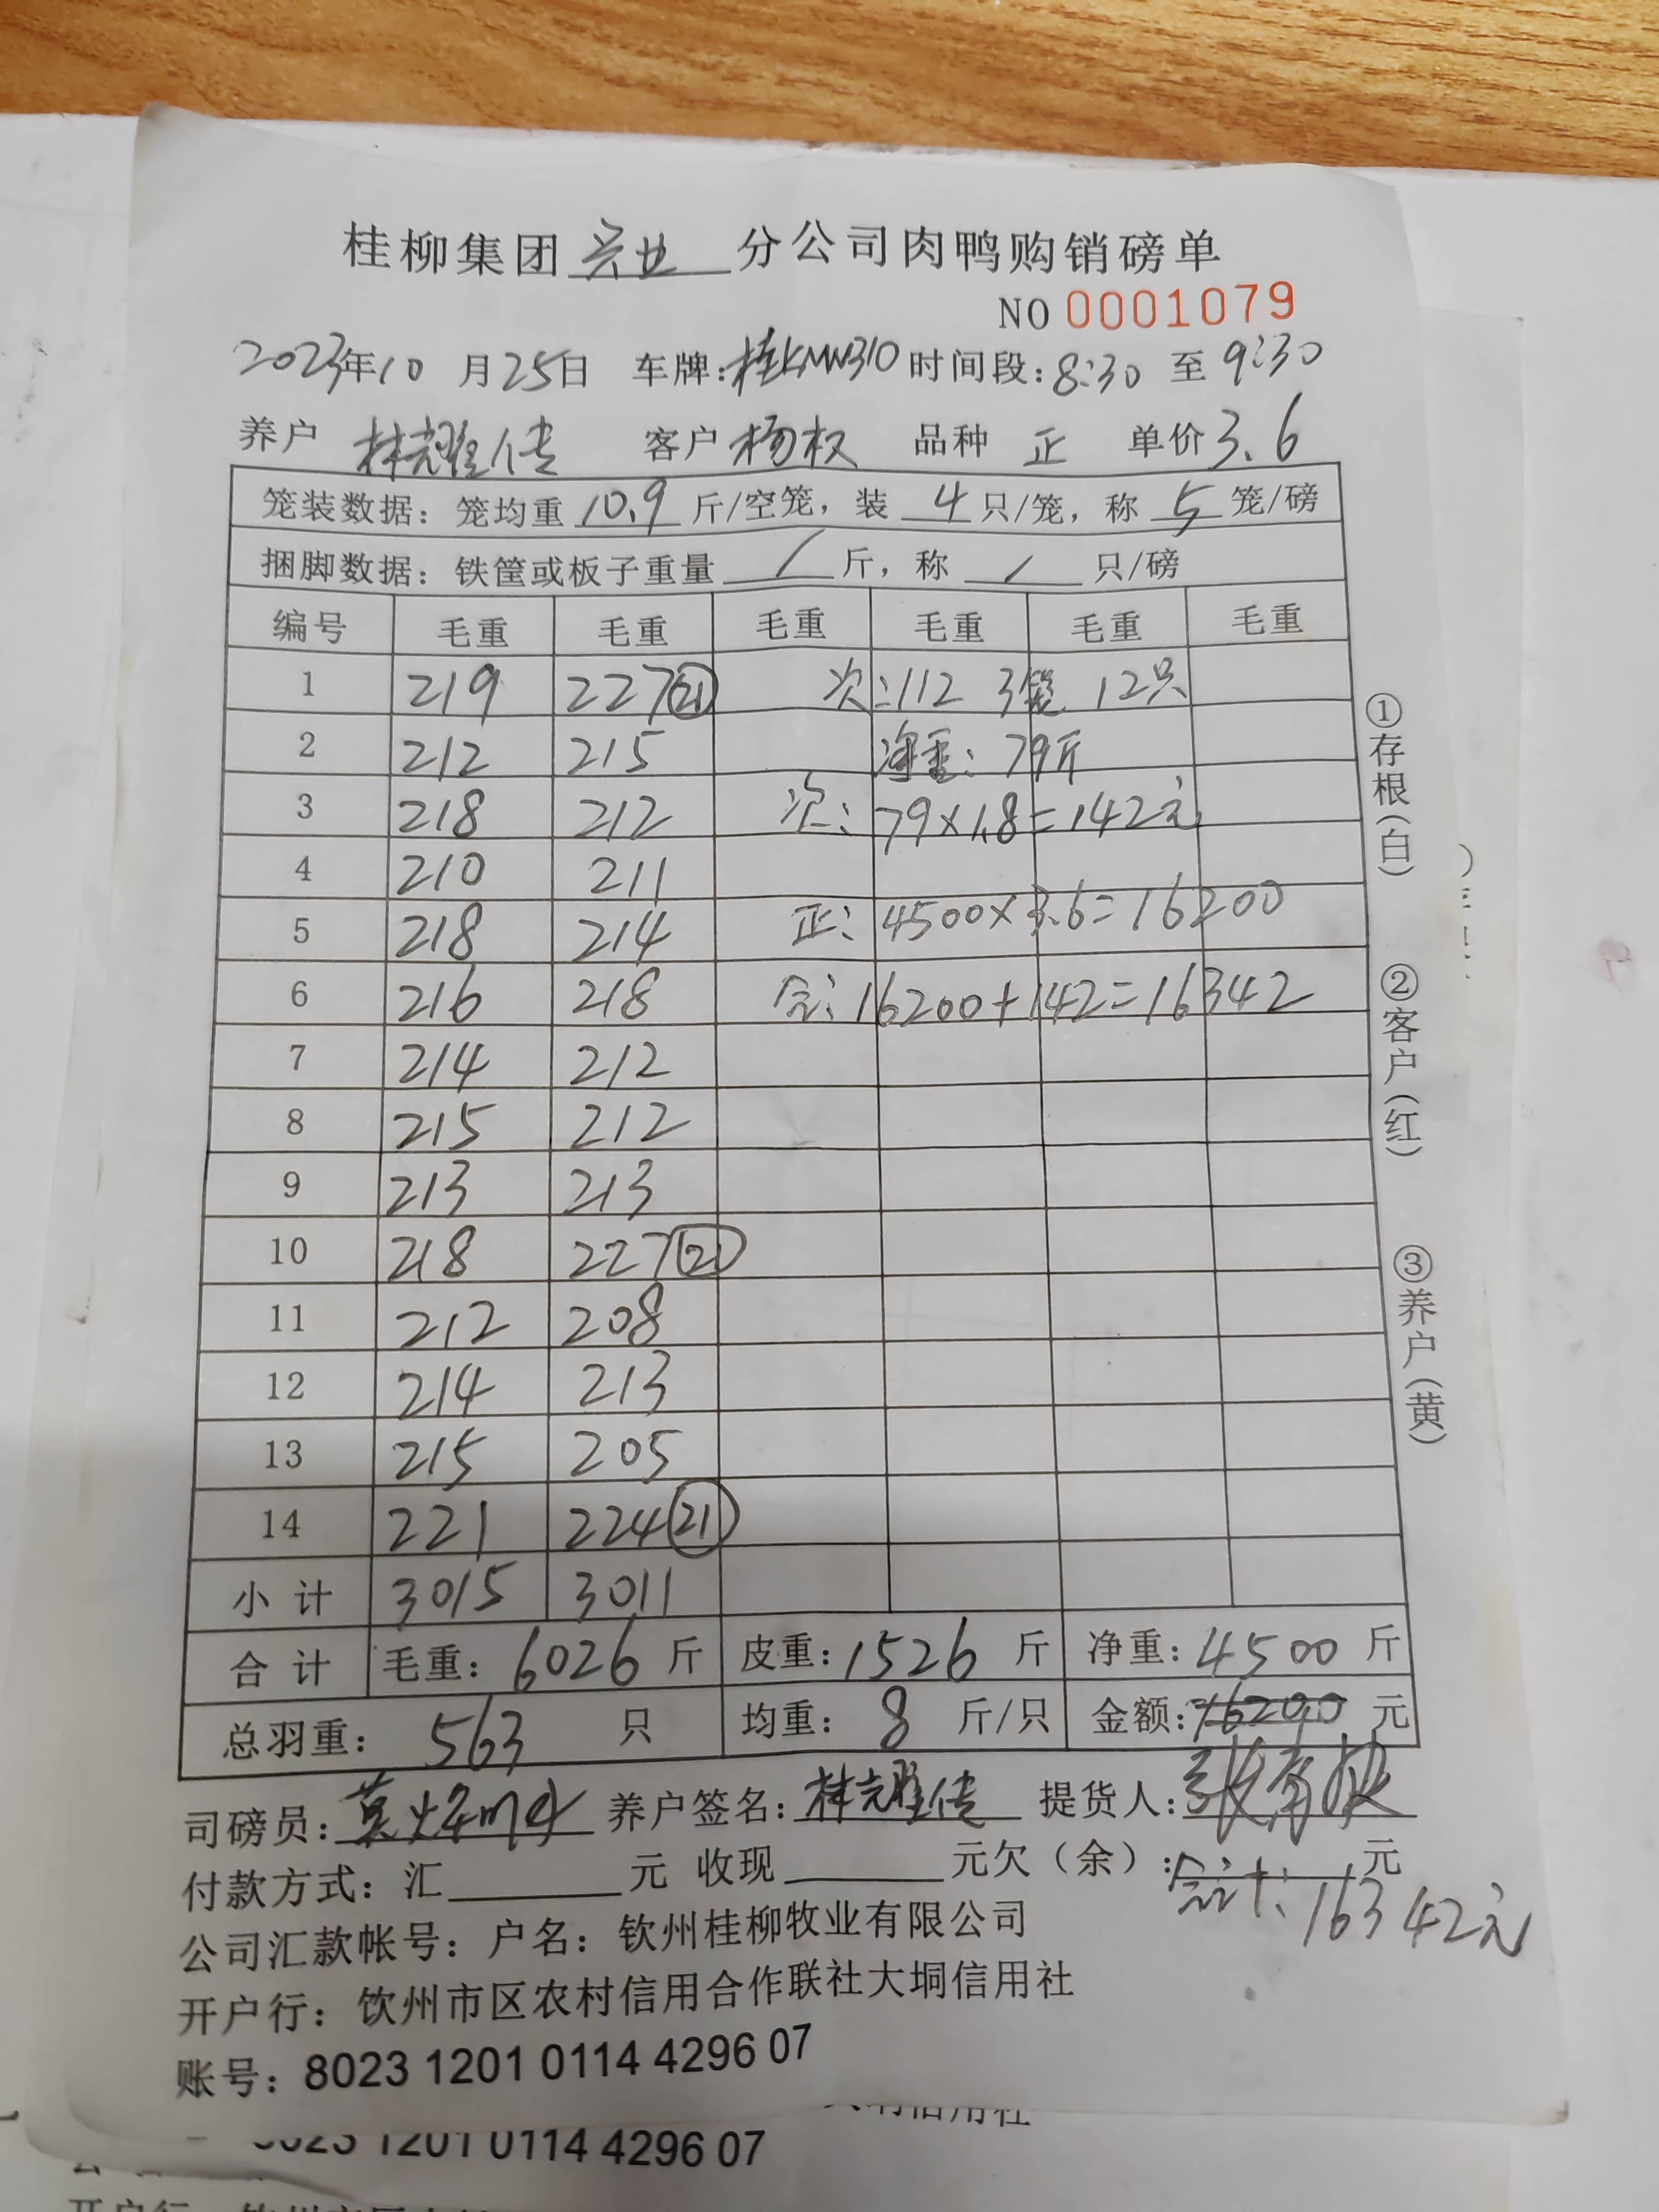 桂柳集团 兴业 分公司肉鸭购销磅单
NO 0001079
2023年10月25日 车牌:桂KMW310 时间段:8:30 至 9:30
养户 林耀传 客户 杨权 品种 正 单价3.6
笼装数据：笼均重 10.9 斤/空笼，装 4 只/笼，称 5 笼/磅
捆脚数据：铁筐或板子重量 / 斤，称 / 只/磅
编号 毛重 毛重 毛重 毛重 毛重 毛重
1 219 227(21) 次:112 3笼 12只
2 212 215 净重：79斤
3 218 212 次：79×1.8=142元
4 210 211
5 218 214 正：4500×3.6=16200
6 216 218 合：16200+142=16342
7 214 212
8 215 212
9 213 213
10 218 227(21)
11 212 208
12 214 213
13 215 205
14 221 224(21)
小计 3015 3011
合计 毛重：6026 斤 皮重：1526 斤 净重：4500 斤
总羽重： 563 只 均重： 8 斤/只 金额：16200 元
司磅员: 养户签名:林耀传 提货人:
付款方式：汇 元 收现 元欠（余）: 元
合计：16342元
公司汇款帐号：户名：钦州桂柳牧业有限公司
开户行：钦州市区农村信用合作联社大垌信用社
账号：8023 1201 0114 4296 07
①存根（白）
②客户（红）
③养户（黄）
8023 1201 0114 4296 07